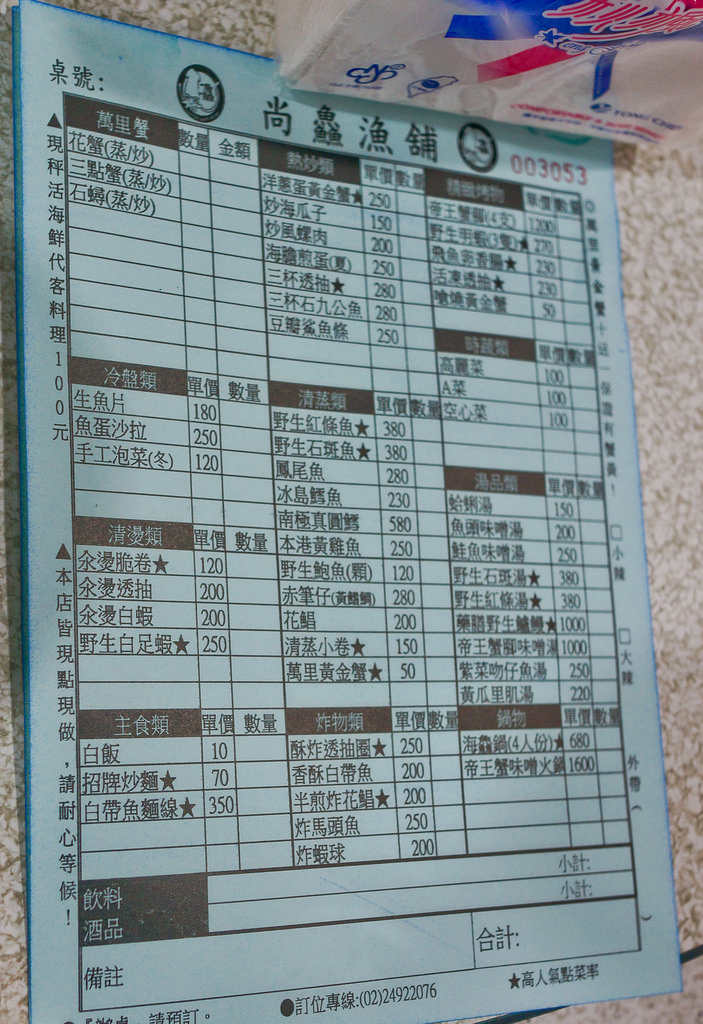 桌號:
尚鱻漁舖
003053
▲現秤活海鮮代客料理100元
▲本店皆現點現做，請耐心等候！
萬里蟹 數量 金額
花蟹(蒸/炒)
三點蟹(蒸/炒)
石蟳(蒸/炒)
冷盤類 單價 數量
生魚片 180
魚蛋沙拉 250
手工泡菜(冬) 120
清燙類 單價 數量
汆燙脆卷★ 120
汆燙透抽 200
汆燙白蝦 200
野生白足蝦★ 250
主食類 單價 數量
白飯 10
招牌炒麵★ 70
白帶魚麵線★ 350
熱炒類 單價 數量
洋蔥蛋黃金蟹★ 250
炒海瓜子 150
炒風螺肉 200
海膽煎蛋(夏) 250
三杯透抽★ 280
三杯石九公魚 280
豆瓣鯊魚條 250
清蒸類 單價 數量
野生紅條魚★ 380
野生石斑魚★ 380
鳳尾魚 280
冰島鱈魚 230
南極真圓鱈 580
本港黃雞魚 250
野生鮑魚(顆) 120
赤筆仔(黃鰭鯛) 280
花鯧 200
清蒸小卷★ 150
萬里黃金蟹★ 50
炸物類 單價 數量
酥炸透抽圈★ 250
香酥白帶魚 200
半煎炸花鯧★ 200
炸馬頭魚 250
炸蝦球 200
烤物 單價 數量
帝王蟹腳(4支) 1200
野生明蝦(3隻)★ 270
飛魚卵香腸★ 230
活凍透抽★ 230
嗆燒黃金蟹 50
時蔬類 單價 數量
高麗菜 100
A菜 100
空心菜 100
湯品類 單價 數量
蛤蜊湯 150
魚頭味噌湯 200
鮭魚味噌湯 250
野生石斑湯★ 380
野生紅條湯★ 380
藥膳野生鱸鰻★ 1000
帝王蟹腳味噌湯 1000
紫菜吻仔魚湯 250
黃瓜里肌湯 220
鍋物 單價 數量
海鱻鍋(4人份)★ 680
帝王蟹味噌火鍋 1600
◎萬里黃金蟹十送一保證有蟹黃！
□小辣
□大辣
外帶( )
飲料
酒品
小計:
小計:
備註
合計:
請預訂。
●訂位專線:(02)24922076
★高人氣點菜率